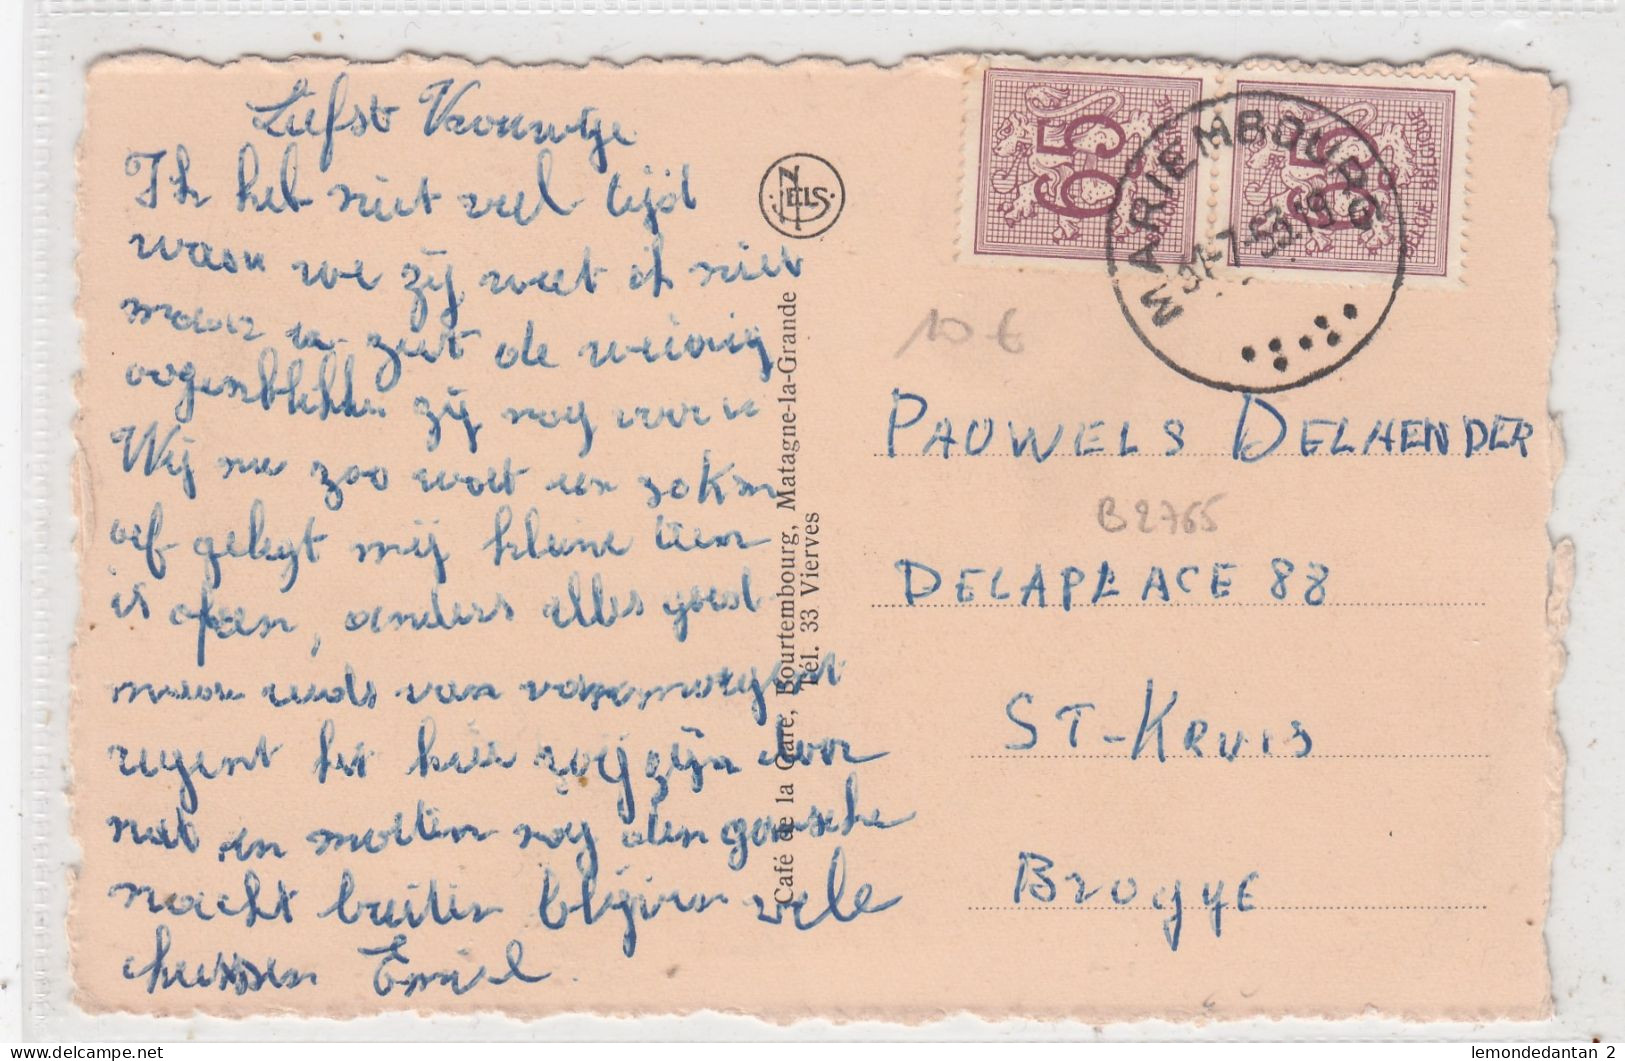 Liefst Vrouwtje
Ik heb niet veel tijd
waar we zij weet ik niet
maar u ziet de weinig
oogenblikken zij nog voor u
Wij nu zoo wat en 20 Km
af gelegt mij kleine teen
is open, anders alles goed
maar reeds van voormorgent
regent het hier wij zijn door
nat en moeten nog den gansche
nacht buiten blijven vele
kussen Emiel.
NELS
Café de la Gare, Bourtembourg, Matagne-la-Grande
Tél. 33 Vierves
65
BELGIE BELGIQUE
65
BELGIE BELGIQUE
MARIEMBOURG
10 €
PAUWELS DELHENDER
B2765
DELAPLACE 88
ST-KRUIS
BRUGGE
lemondedantan 2